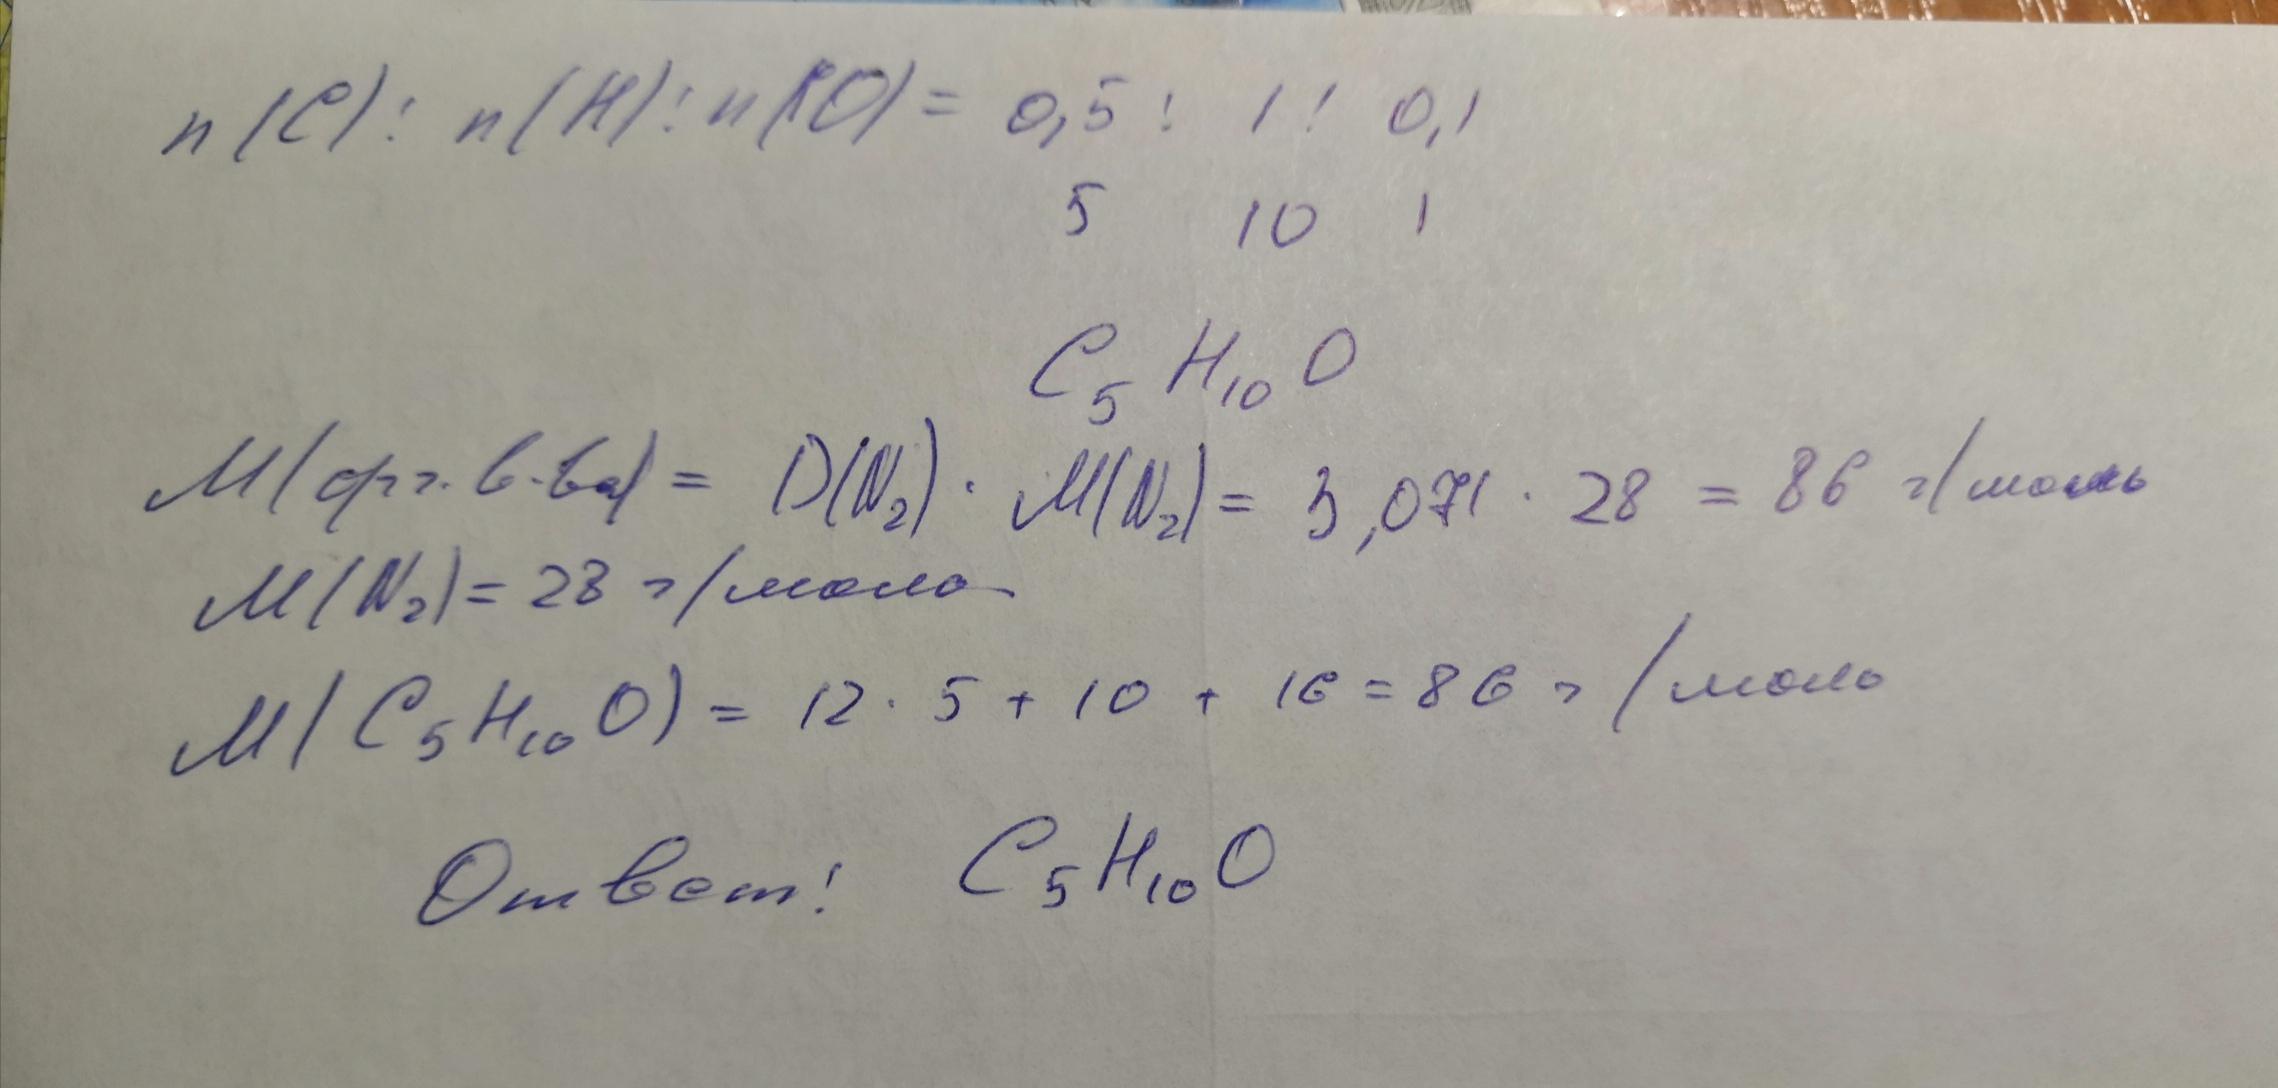 n(C) : n(H) : n(O) = 0,5 : 1 : 0,1
5 10 1
C₅H₁₀O
M(орг. в-ва) = D(N₂) · M(N₂) = 3,071 · 28 = 86 г/моль
M(N₂) = 28 г/моль
M(C₅H₁₀O) = 12 · 5 + 10 + 16 = 86 г/моль
Ответ: C₅H₁₀O